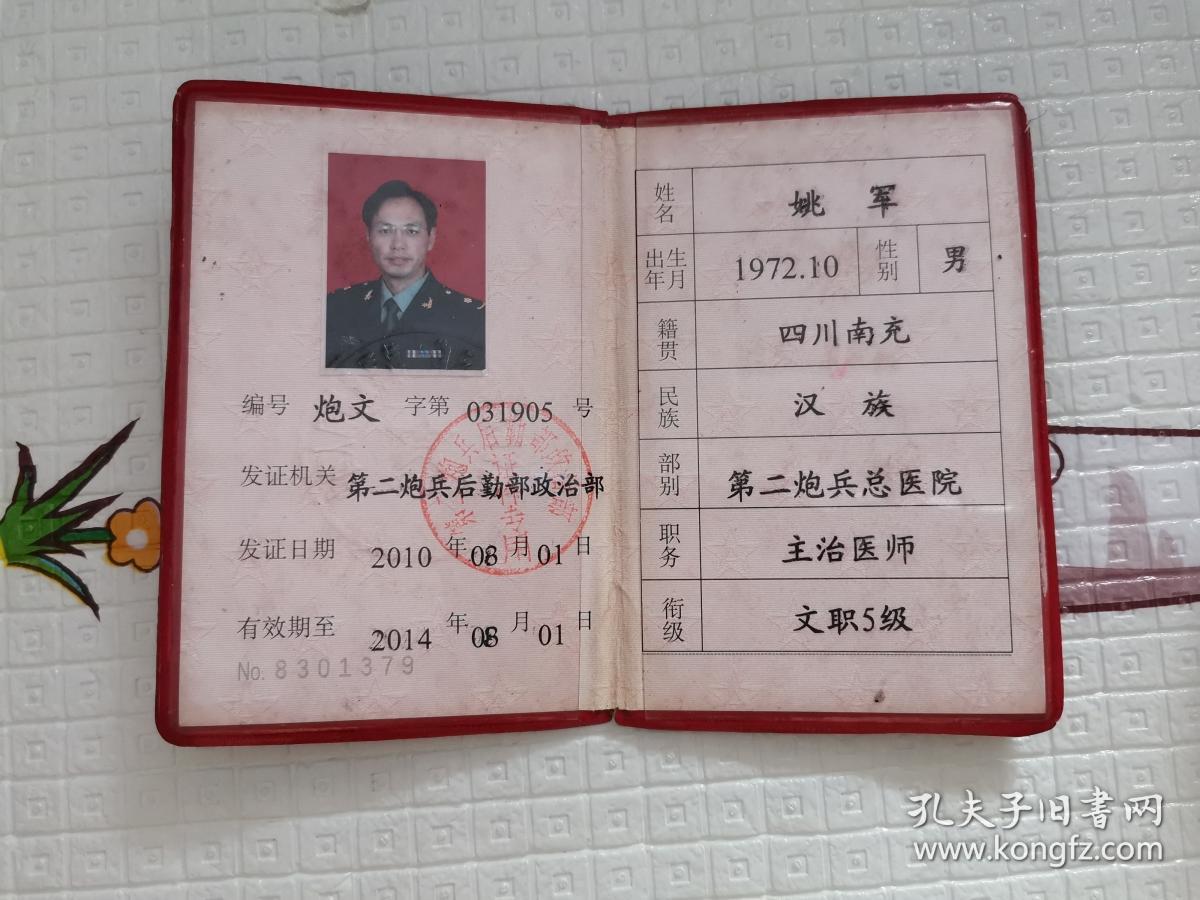 编号 炮文 字第 031905 号
发证机关 第二炮兵后勤部政治部
发证日期 2010 年 08 月 01 日
有效期至 2014 年 08 月 01 日
No. 8301379
姓名 姚军
出生年月 1972.10 性别 男
籍贯 四川南充
民族 汉族
部别 第二炮兵总医院
职务 主治医师
衔级 文职5级
孔夫子旧書网
www.kongfz.com